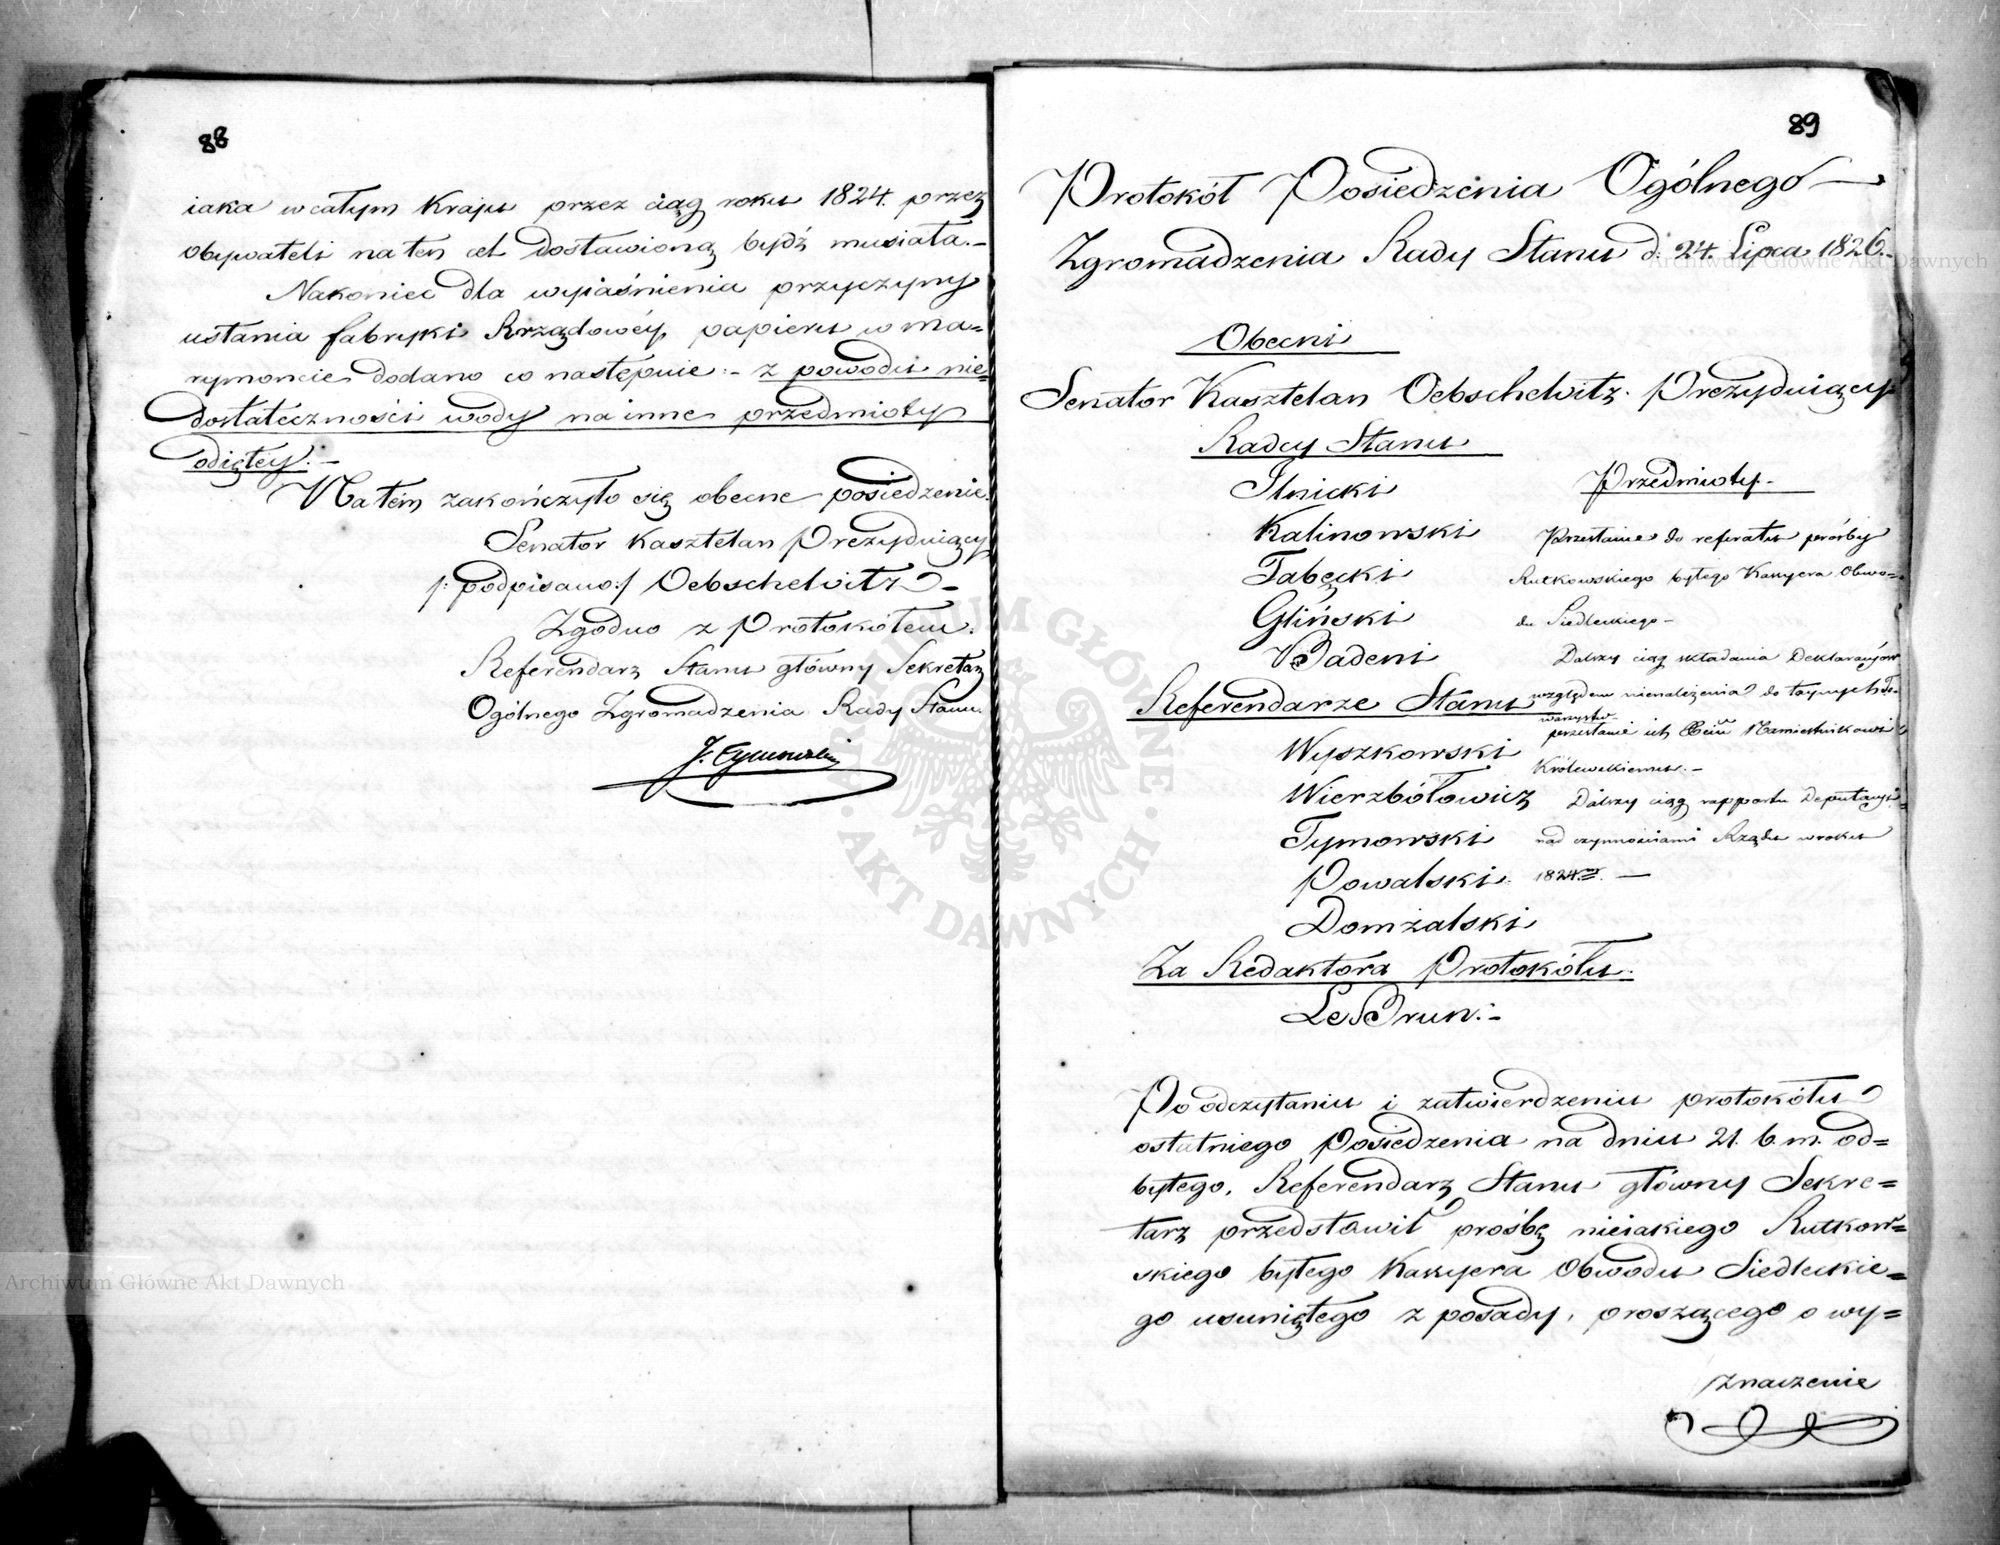 88
iaka w całym Kraju przez ciąg roku 1824. przez
Obywateli na ten cel dostawioną bydź musiała.–
Nakoniec dla wyiaśnienia przyczyny
ustania fabryki Rządowéy papieru w Ma=
rymoncie dodano co następuie:– z powodu nie=
dostateczności wody na inne przedmioty
odiętey.–
Na tém zakończyło się obecne posiedzenie.
Senator Kasztelan Prezyduiący
/: podpisano:/ Oebschelwitz –
Zgodno z Protokółem.
Referendarz Stanu główny Sekretarz
Ogólnego Zgromadzenia Rady Stanu.
J. Tymowski
89
Protokół Posiedzenia Ogólnego
Zgromadzenia Rady Stanu d: 24. Lipca 1826.–
Obecni
Senator Kasztelan Oebschelwitz. Prezyduiący.
Radcy Stanu
Ilnicki
Kalinowski
Tabęcki
Gliński
Badeni
Referendarze Stanu
Wyszkowski
Wierzbółowicz
Tymowski
Powalski
Domżalski
Za Redaktora Protokółu.
Le Brun.–
Przedmioty.–
Przesłanie do referatu prośby
Rutkowskiego byłego Kassyera Obwo=
du Siedleckiego–
Dalszy ciąg składania Deklaracyów
względem nienależenia do taynych To=
warzystw
przesłanie ich Xciu Namiestnikowi
Królewskiemu.–
Dalszy ciąg rapportu Deputacyi
nad czynnościami Rządu w roku
1824.m –
Po odczytaniu i zatwierdzeniu protokółu
ostatniego Posiedzenia na dniu 21. b. m. od=
bytego, Referendarz Stanu główny Sekre=
tarz przedstawił prośbę nieiakiego Rutkow=
skiego byłego Kassyera Obwodu Siedleckie=
go usuniętego z posady, proszącego o wy=
znaczenie
Archiwum Główne Akt Dawnych
Archiwum Główne Akt Dawnych
ARCHIWUM GŁÓWNE · AKT DAWNYCH ·